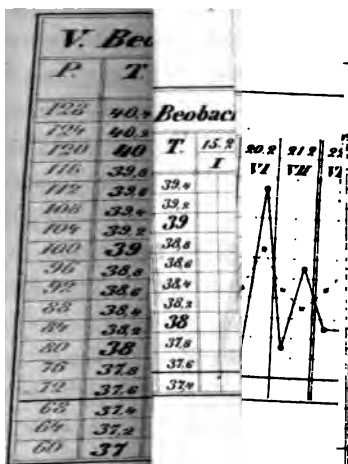 V. Beo
P. T.
128 40,4
124 40,2
120 40
116 39,8
112 39,6
108 39,4
104 39,2
100 39
96 38,8
92 38,6
88 38,4
84 38,2
80 38
76 37,8
72 37,6
68 37,4
64 37,2
60 37
Beobac
T. 15.2
I
39,4
39,2
39
38,8
38,6
38,4
38,2
38
37,8
37,6
37,4
20.2 21.2
VI VII